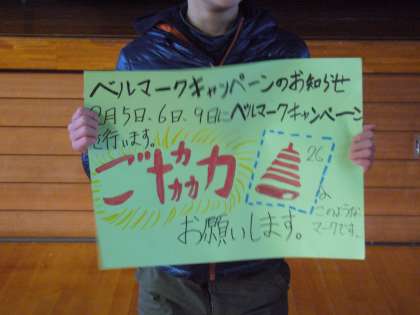 ベルマークキャンペーンのお知らせ
2月5日、6日、9日にベルマークキャンペーン
を行います。
ご協力
26
お願いします。
このような
マークです。